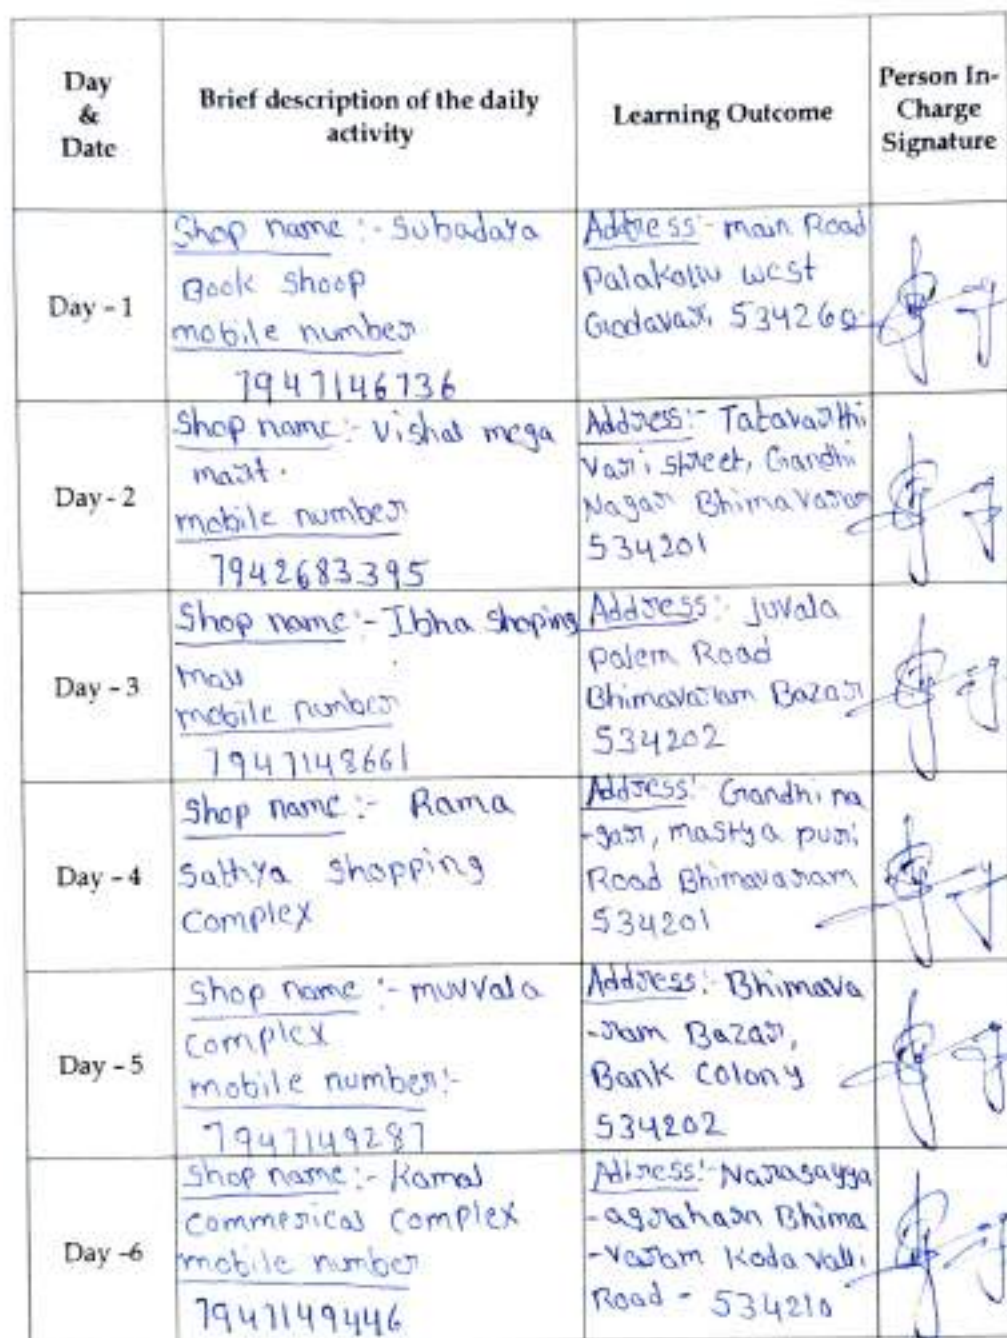 Day
&
Date
Brief description of the daily
activity
Learning Outcome
Person In-
Charge
Signature
Day - 1
Shop name :- Subadaya
Book Shoop
mobile number
7947146736
Address :- main Road
Palakollu west
Godavari 534260
Day - 2
Shop name :- Vishal mega
mart.
mobile number
7942683395
Address :- Tatavarthi
Vari street, Gandhi
Nagar Bhimavaram
534201
Day - 3
Shop name :- Ibha Shoping
mall
mobile number
7947148661
Address :- Juvala
palem Road
Bhimavaram Bazar
534202
Day - 4
Shop name :- Rama
Sathya Shopping
Complex
Address :- Gandhi na
-gar, mastya puri
Road Bhimavaram
534201
Day - 5
Shop name :- muvvala
Complex
mobile number :-
7947149287
Address :- Bhimava
-ram Bazar,
Bank Colony
534202
Day -6
Shop name :- Kamal
commerical complex
mobile number
7947149446
Address :- Narasayya
-agraharn Bhima
-varam Koda valli
Road - 534210